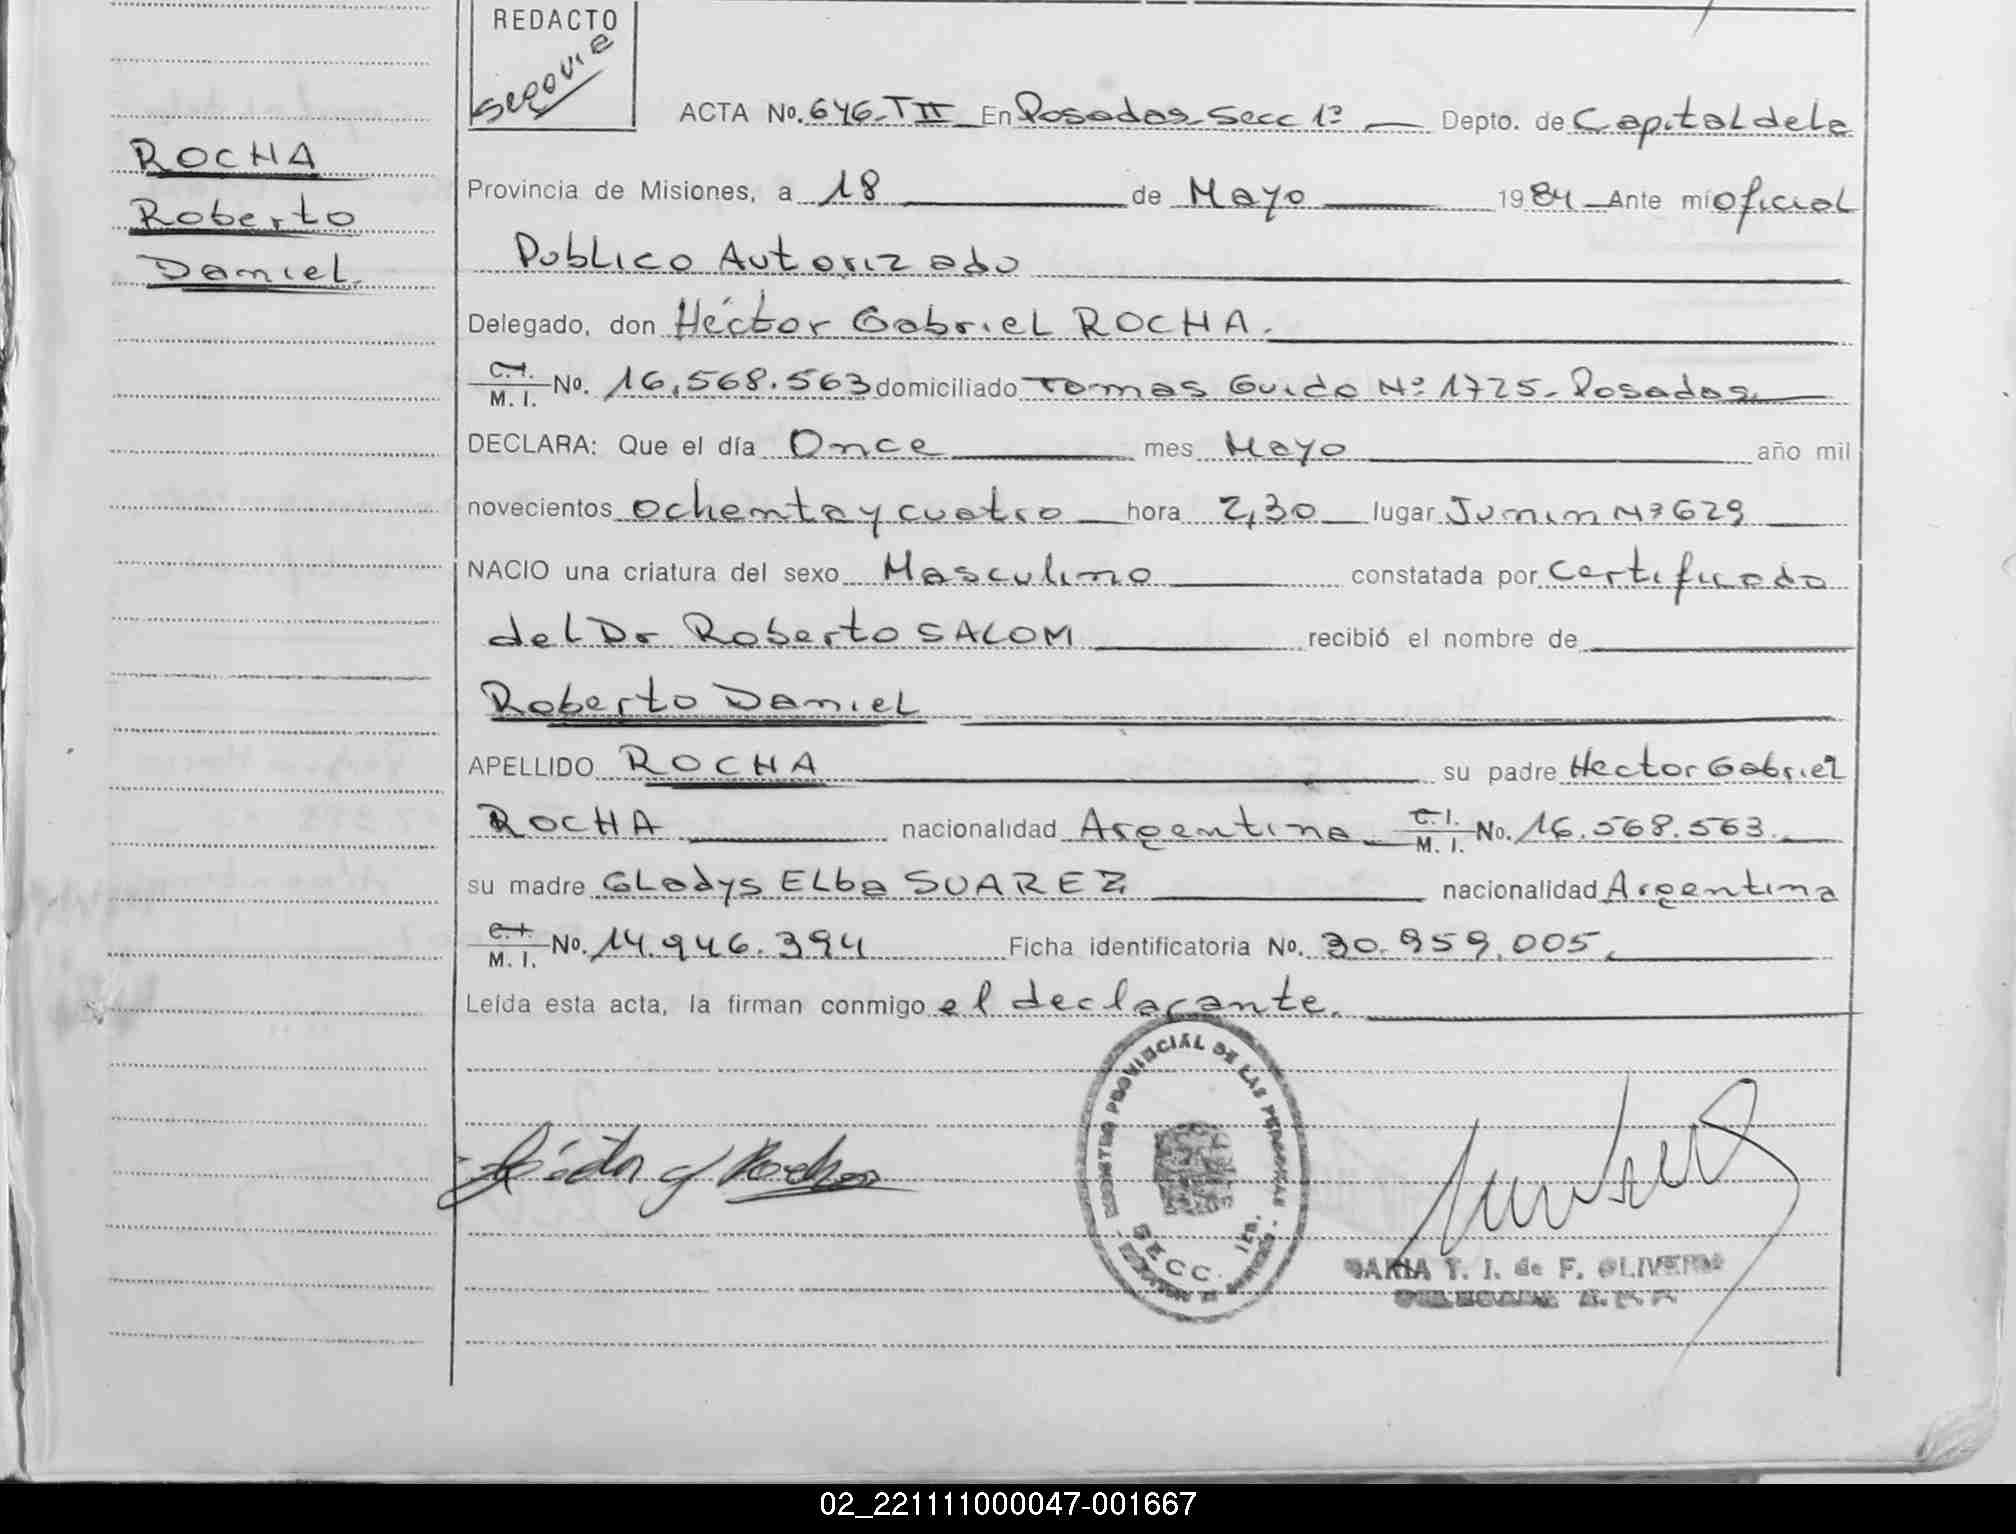 REDACTO
Segovia
ACTA No. 646-TII En Posadas Secc 1ª Depto. de Capital de la
ROCHA
Roberto
Daniel.
Provincia de Misiones, a 18 de Mayo 1984 Ante mí oficial
Publico Autorizado
Delegado, don Héctor Gabriel ROCHA.
C.I.
M. I. No. 16.568.563 domiciliado Tomas Guido Nº 1725. Posadas
DECLARA: Que el día Once mes Mayo año mil
novecientos ochenta y cuatro hora 2,30 lugar Junin Nº 629
NACIO una criatura del sexo Masculino constatada por Certificado
del Dr Roberto SALOM recibió el nombre de
Roberto Daniel
APELLIDO ROCHA su padre Hector Gabriel
ROCHA nacionalidad Argentina C.I.
M. I. No. 16.568.563.
su madre Gladys Elba SUAREZ nacionalidad Argentina
C.I.
M. I. No. 14.946.394 Ficha identificatoria No. 30.959.005.
Leída esta acta, la firman conmigo el declarante.
REGISTRO PROVINCIAL DE LAS PERSONAS
SECC. 1ra.
Héctor G Rocha
MARIA T. I. de F. OLIVERA
02_221111000047-001667